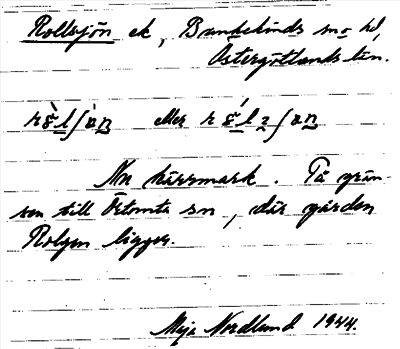 Rollsjön ek, Bankekinds sn o hd,
Östergötlands län.
eller
Nu kärrmark. På grän-
sen till Örtomta sn, där gården
Rolgen ligger.
Maja Nordlund 1944.